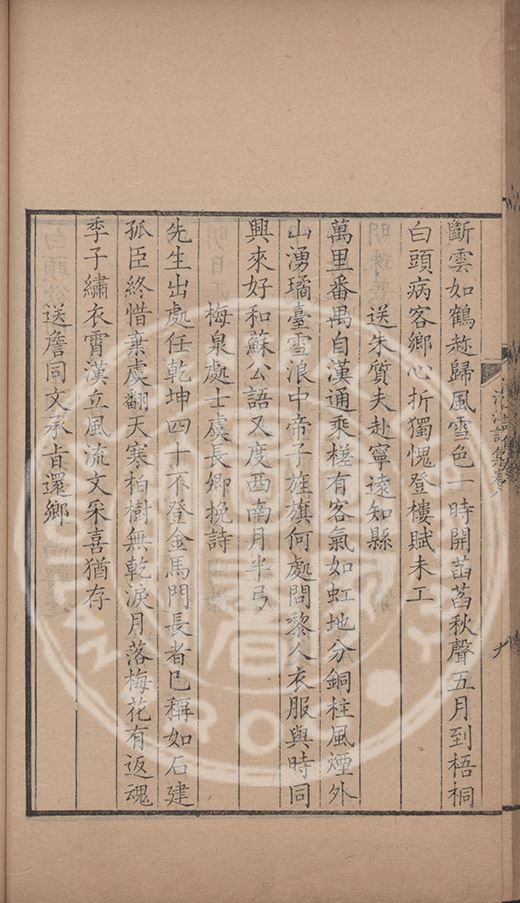 斷雲如鶴趂歸風雪色一時開菡萏秋聲五月到梧桐
白頭病客鄉心折獨愧登樓賦未工
送朱質夫赴寧遠知縣
萬里番禺自漢通乘槎有客氣如虹地分銅柱風煙外
山湧瑤臺雪浪中帝子旌旗何處問黎人衣服與時同
興來好和蘇公語又度西南月半弓
梅泉處士虞長卿挽詩
先生出處任乾坤四十不登金馬門長者已稱如石建
孤臣終惜棄虞翻天寒柏樹無乾淚月落梅花有返魂
季子繡衣霄漢立風流文采喜猶存
送詹同文承旨還鄉